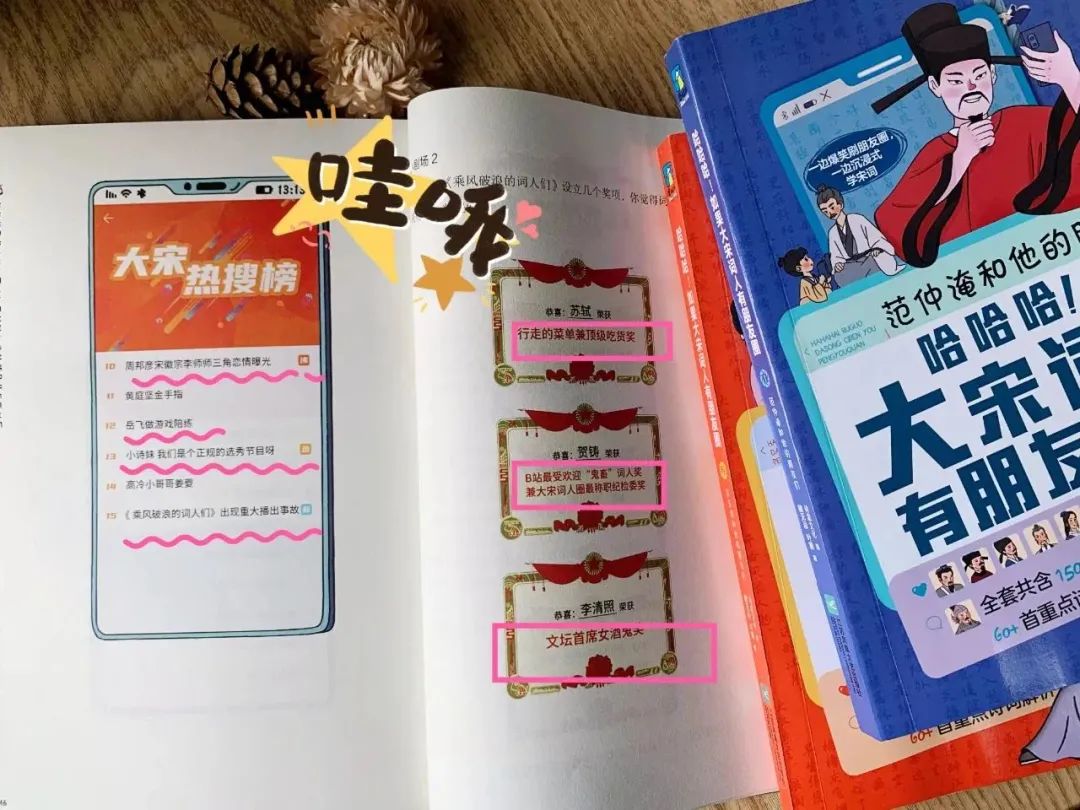 13:13
大宋
热搜榜
10 周邦彦宋徽宗李师师三角恋情曝光
11 黄庭坚金手指
12 岳飞做游戏陪练
13 小诗妹 我们是个正规的选秀节目呀
14 高冷小哥哥姜夔
15 《乘风破浪的词人们》出现重大播出事故
哇呀
剧场 2
《乘风破浪的词人们》设立几个奖项,你觉得词
恭喜:苏轼 荣获
行走的菜单兼顶级吃货奖
恭喜:贺铸 荣获
B站最受欢迎“鬼畜”词人奖
兼大宋词人圈最称职纪检委奖
恭喜:李清照 荣获
文坛首席女酒鬼奖
哈哈哈!如果大宋词人有朋友圈
哈哈哈!如果大宋词人有朋友圈
一边爆笑刷朋友圈,
一边沉浸式
学宋词
范仲淹和他的朋
HAHAHA! RUGUO
DASONG CIREN YOU
PENGYOUQUAN
哈哈哈!
大宋词
有朋友
全套共含 150
60+ 首重点诗
60+ 首重点诗词解析